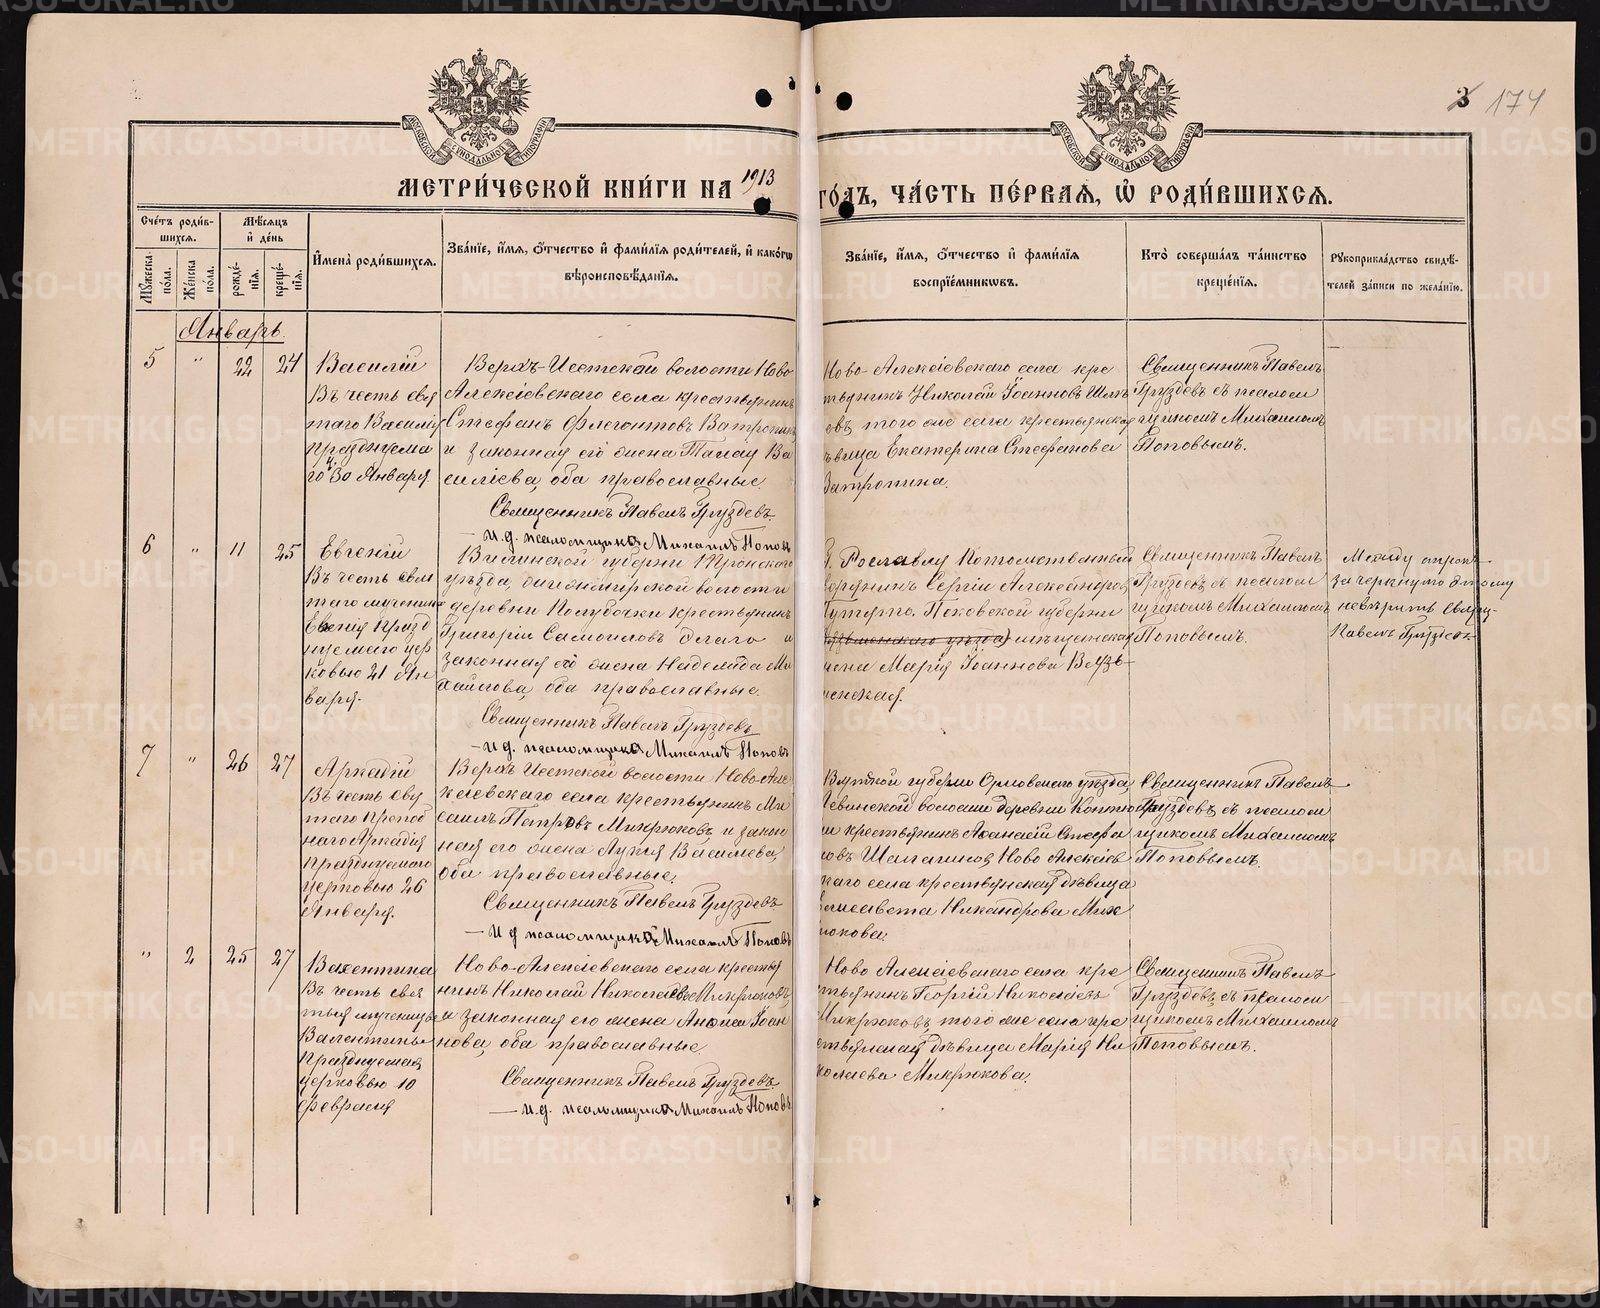 3 174
МЕТРИ́ЧЕСКОЙ КНИ́ГИ НА 1913 ГО́ДЪ, ЧА́СТЬ ПЕ́РВАЯ, Ѽ РОДИ́ВШИХСЯ.
Сче́тъ роди́в-
шихся.
Мꙋжеска
по́ла.
Же́нска
по́ла.
Мѣ́сяцъ
и҆ де́нь
рожде́-
нїя.
креще́-
нїя.
И҆мена̀ роди́вшихся.
Зва́нїе, и҆́мя, ѻ҆́тчество и҆ фами́лїя роди́телей, и҆ како́гѡ
вѣроисповѣ́данїя.
Зва́нїе, и҆́мя, ѻ҆́тчество и҆ фами́лїя
воспрїе́мниковъ.
Кто̀ соверша́лъ та́инство
креще́нїя.
Рꙋкоприкла́дство свидѣ́-
телей за́писи по жела́нїю.
Январь.
5 " 22 24
Василій
Въ честь свя
таго Василія
празднуема
го 30 Января.
Верхъ-Исетской волости Ново
Алексіевскаго села крестьянинъ
Стефанъ Флегонтовъ Ватропинъ
и законная его жена Ва
силіева, оба православные.
Священникъ Павелъ Груздевъ.
И.д. псаломщика Михаилъ Поповъ
Ново-Алексіевскаго села кре
стьянинъ Николай Іоанновъ
того же села крестьянская
дѣвица Екатерина Стефанова
Ватропина.
Священникъ Павелъ
Груздевъ съ псалом
щикомъ Михаиломъ
Поповымъ.
6 " 11 25
Евгеній
Въ честь свя
таго мученика
Евгенія празд
нуемаго цер
ковью 21 Ян
варя.
губерніи
уѣзда, волости
деревни крестьянинъ
Григорій Самоиловъ и
законная его жена Надежда Ми
хайлова, оба православные.
Священникъ Павелъ Груздевъ
И.д. псаломщика Михаилъ Поповъ
Г. Рославля Потомственный
дворянинъ Сергій Александров
Путято. Псковской губерніи
уѣзда мѣщанская
жена Марія Іоаннова
Священникъ Павелъ
Груздевъ съ псалом
щикомъ Михаиломъ
Поповымъ.
Между строк
зачеркнутому
невѣрить Свящ.
Павелъ Груздевъ
7 " 26 27
Аркадій
Въ честь свя
таго Препод
наго Аркадія
празднуемаго
церковью 26
Января.
Верхъ Исетской волости Ново-Але
ксіевскаго села крестьянинъ Ми
хаилъ Петровъ Микрюковъ и закон
ная его жена Лукія Васильева,
оба православные.
Священникъ Павелъ Груздевъ
И д псаломщика Михаилъ Поповъ
Вятской губерніи Орловскаго уѣзда,
волости деревни
крестьянинъ Аѳанасій Стефа
новъ Ново Алексіев
скаго села крестьянская дѣвица
Елисавета Никандрова Мик
рюкова.
Священникъ Павелъ
Груздевъ съ псалом
щикомъ Михаиломъ
Поповымъ.
" 2 25 27
Валентина
Въ честь свя
тыя мученицы
Валентины
празднуемыя
церковью 10
февраля
Ново-Алексіевскаго села крестья
нинъ Николай Николаевъ Микрюковъ
и законная его жена Анѳиса Іоан
нова, оба православные
Священникъ Павелъ Груздевъ.
И.д. псаломщика Михаилъ Поповъ
Ново Алексіевскаго села кре
стьянинъ Георгій Николаевъ
Микрюковъ, того же села кре
стьянская дѣвица Марія Ни
колаева Микрюкова.
Священникъ Павелъ
Груздевъ съ псалом
щикомъ Михаиломъ
Поповымъ.
METRIKI.GASO-URAL.RU